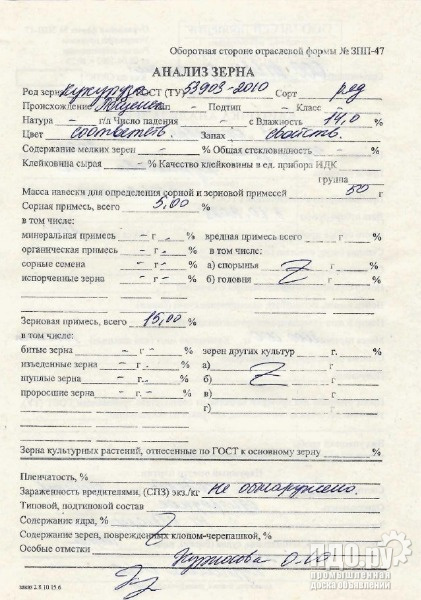 Оборотная стороне отраслевой формы № ЗПП-47
АНАЛИЗ ЗЕРНА
Род зерна кукуруза ГОСТ (ТУ) 53903-2010 Сорт ряд
Происхождение Тип – Подтип – Класс –
Натура – г/л Число падения – с Влажность 14,0 %
Цвет соответств. Запах свойств.
Содержание мелких зерен – % Общая стекловидность – %
Клейковина сырая – % Качество клейковины в ед. прибора ИДК
группа
Масса навески для определения сорной и зерновой примесей 50 г
Сорная примесь, всего 5,00 %
в том числе:
минеральная примесь – г – % вредная примесь всего г %
органическая примесь – г – % в том числе:
сорные семена – г – % а) спорынья г %
испорченные зерна – г – % б) головня г %
Зерновая примесь, всего 15,00 %
в том числе:
битые зерна – г – % зерен других культур г. %
изъеденные зерна – г – % а) г %
щуплые зерна – г – % б) г %
проросшие зерна – г – % в) г %
г) г %
Зерна культурных растений, отнесенные по ГОСТ к основному зерну %
Пленчатость, %
Зараженность вредителями, (СПЗ) экз./кг не обнаружено.
Типовой, подтиповой состав
Содержание ядра, %
Содержание зерен, поврежденных клопом-черепашкой, %
Особые отметки
ИДО.ру
промышленная
доска объявлений